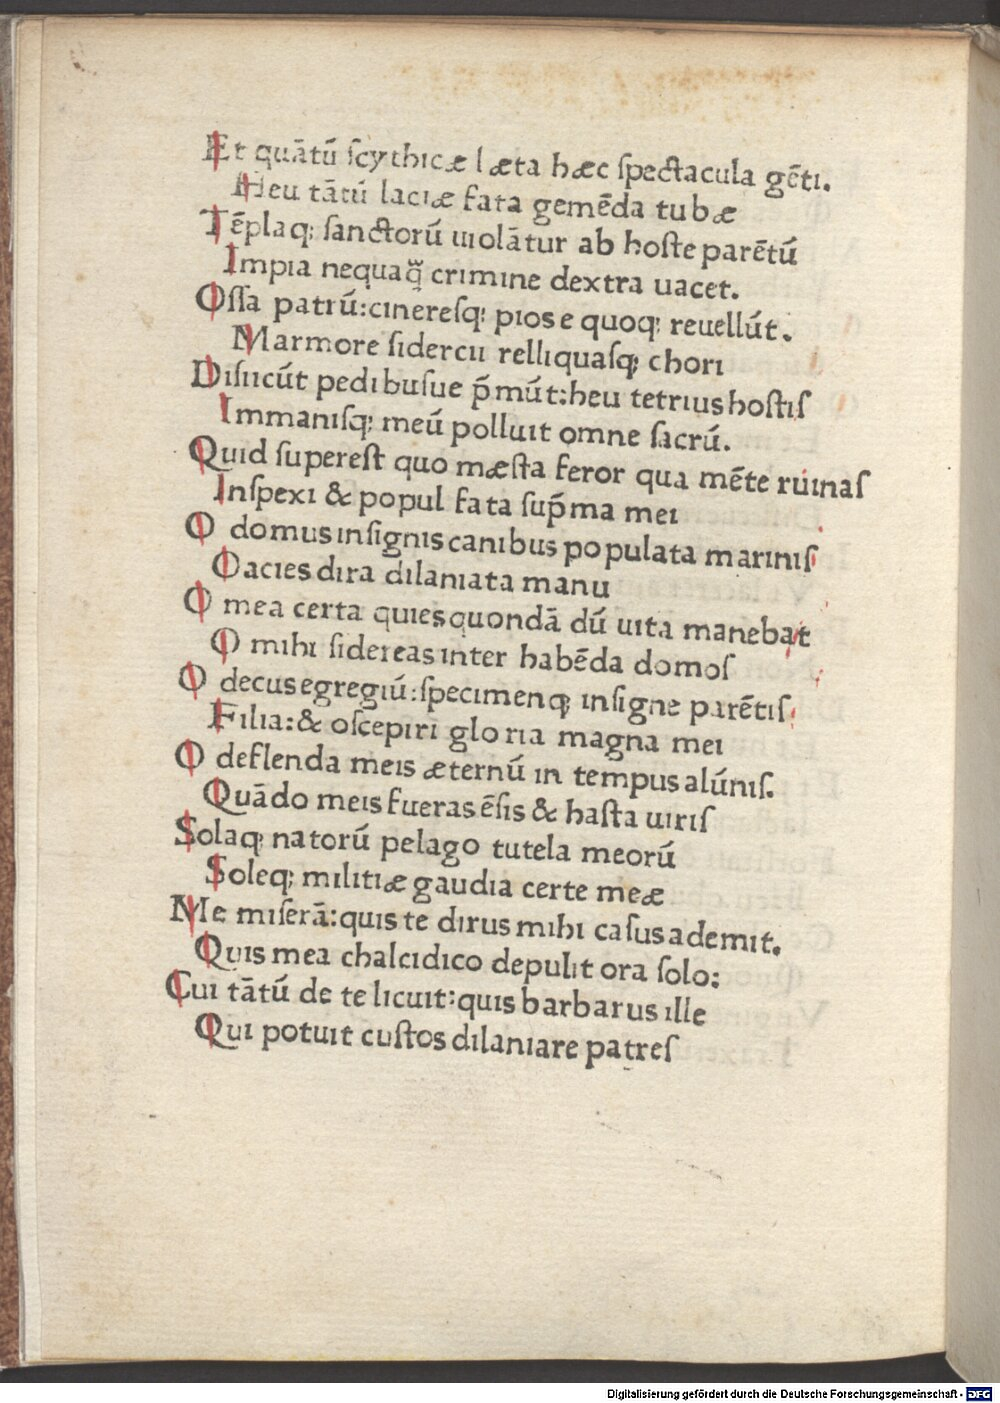 Et quātū ſcythicæ læta hæc ſpectacula gēti.
Heu tātū laciæ fata gemēda tubæ
Tēplaq; ſanctorū uiolātur ab hoſte parētū
Impia nequaq̄ crimine dextra uacet.
Oſſa patrū:cinereſq; pios e quoq; reuellūt.
Marmore ſidercii relliquaſq; chori
Diſiicūt pedibuſue p̄mūt:heu tetrius hoſtiſ
Immaniſq; meū polluit omne ſacrū.
Quid ſupereſt quo mæſta feror qua mēte ruinaſ
Inſpexi & popul fata ſup̄ma mei
O domus inſignis canibus populata mariniſ
O acies dira dilaniata manu
O mea certa quies quondā dū uita manebat
O mihi ſidereas inter habēda domoſ
O decus egregiū:ſpecimenq; inſigne parētiſ
Filia:& oſcepiri gloria magna mei
O deflenda meis æternū in tempus alūniſ.
Quādo meis fueras ēſis & haſta uiriſ
Solaq; natorū pelago tutela meorū
Soleq; militiæ gaudia certe meæ
Me miſerā:quis te dirus mihi caſus ademit.
Quis mea chalcidico depulit ora ſolo:
Cui tātū de te licuit:quis barbarus ille
Qui potuit cuſtos dilaniare patreſ
Digitalisierung gefördert durch die Deutsche Forschungsgemeinschaft - DFG